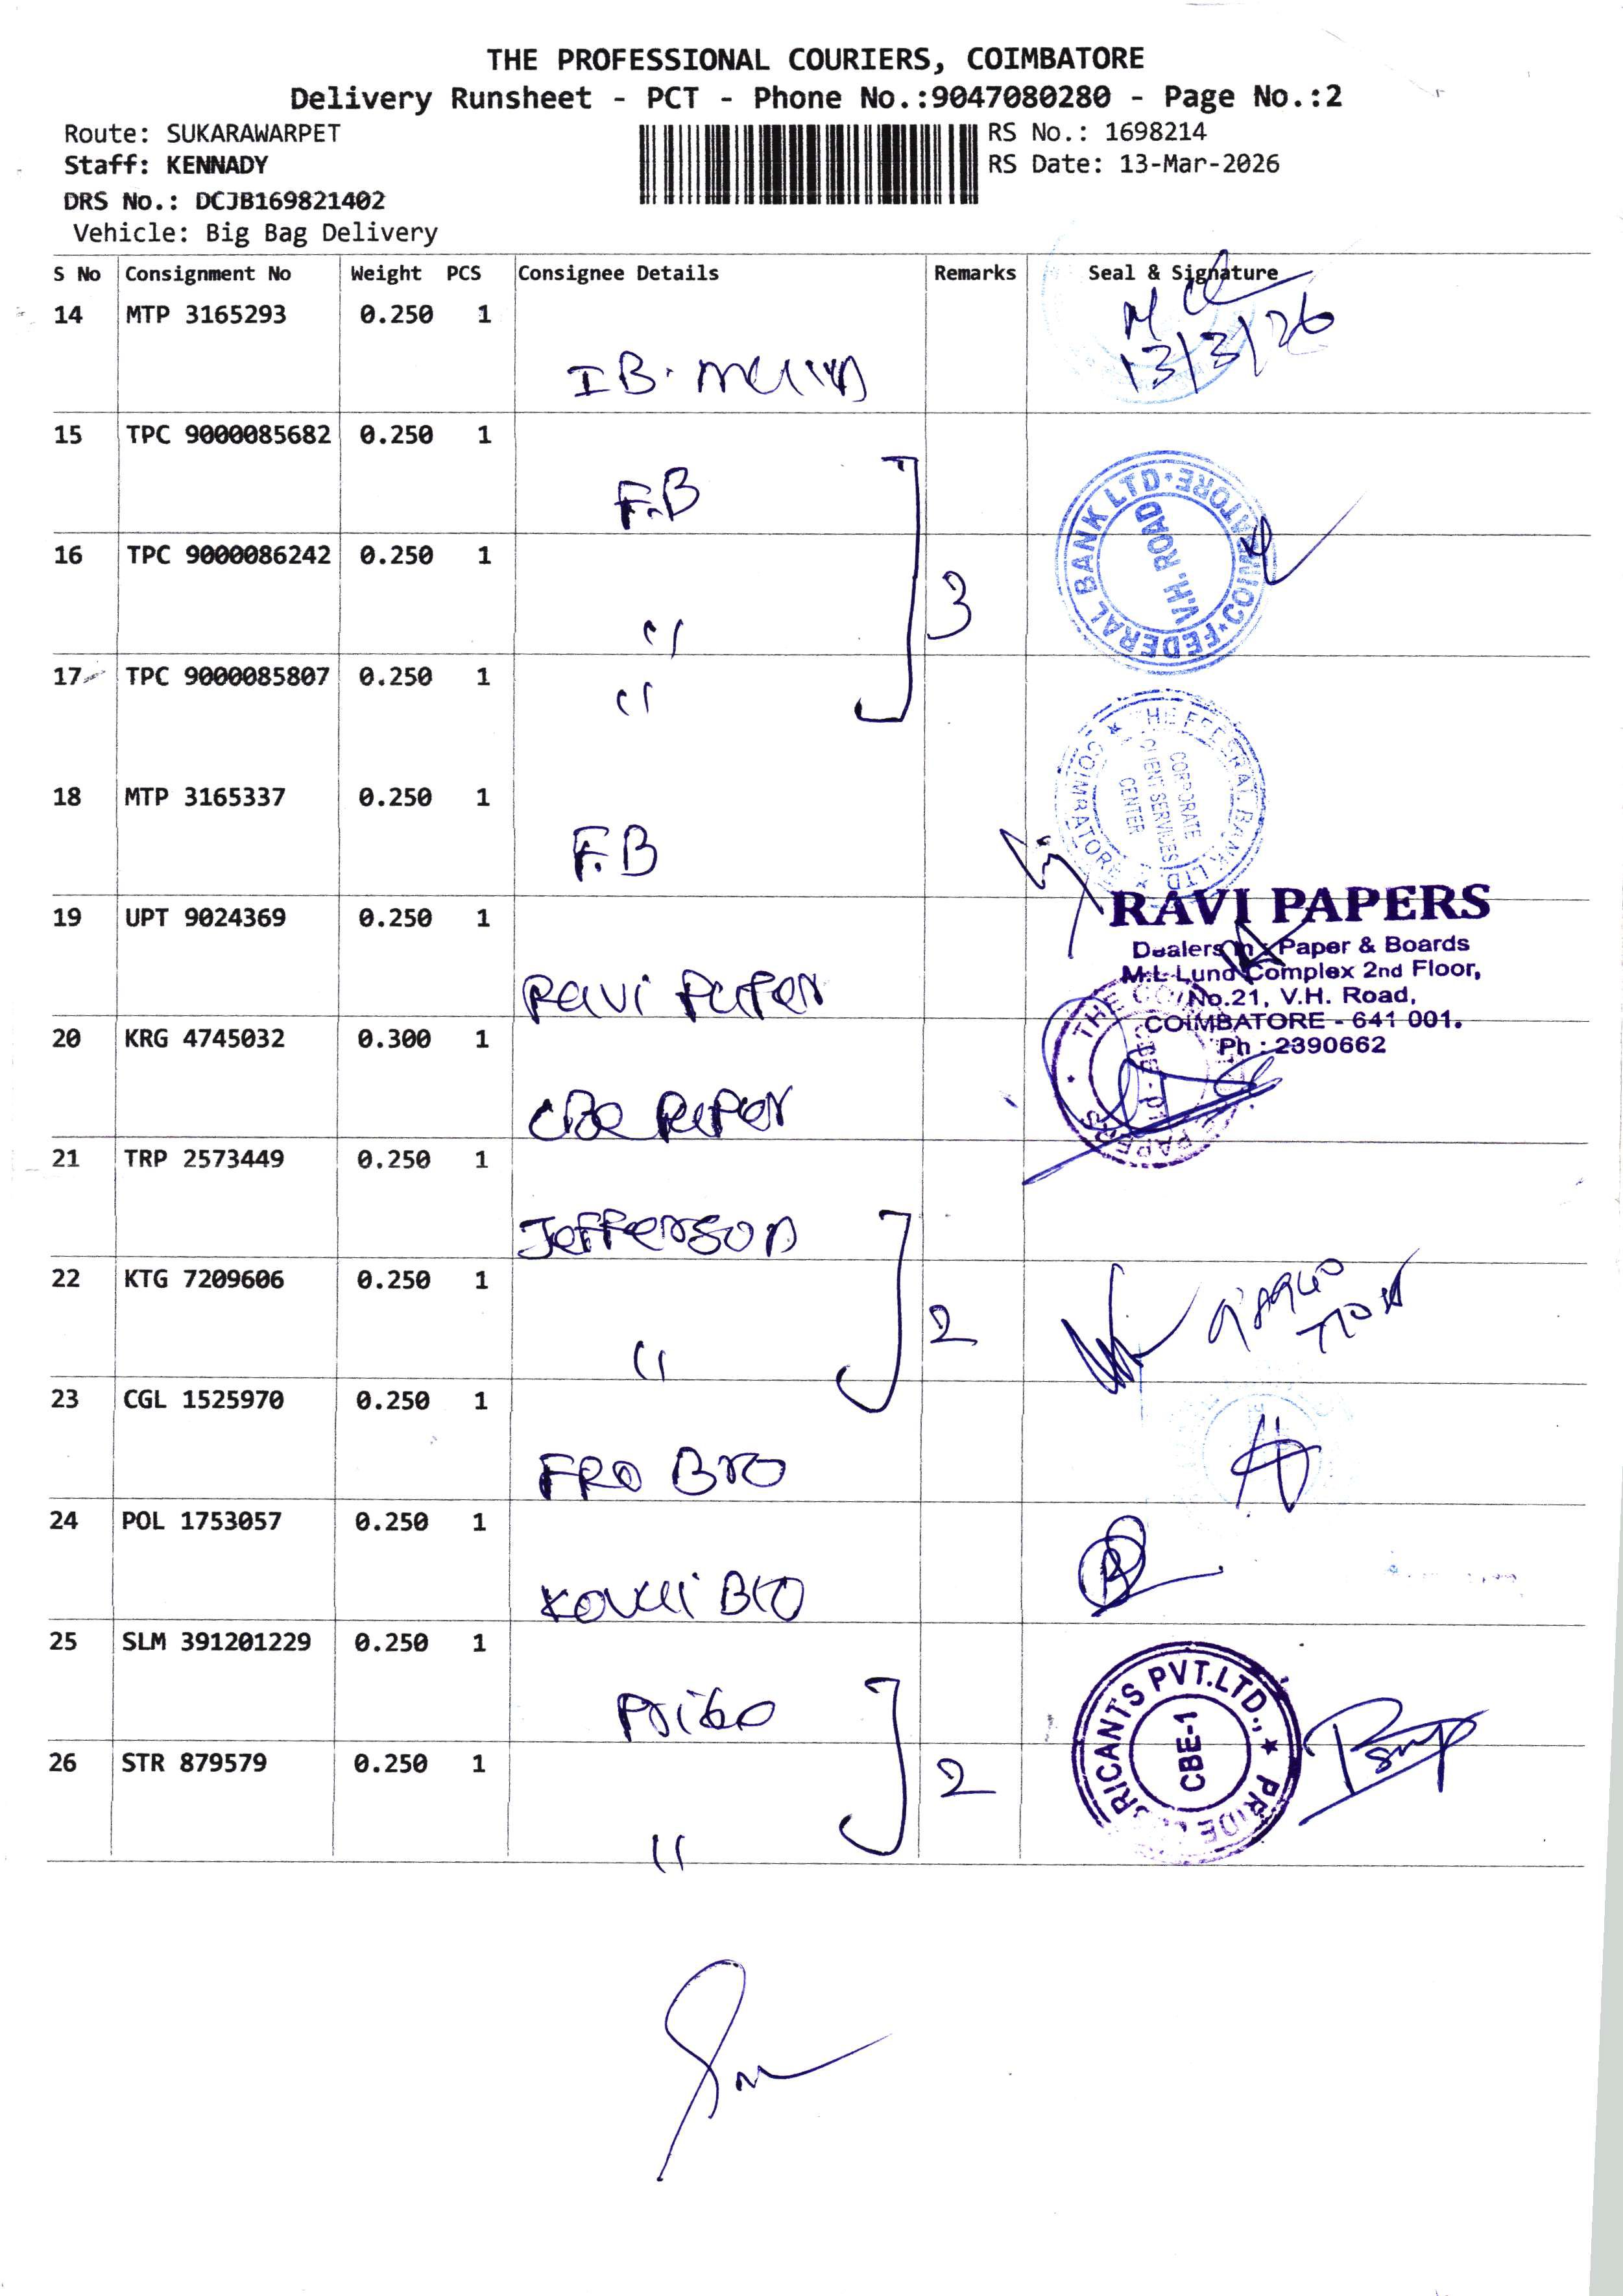 THE PROFESSIONAL COURIERS, COIMBATORE
Delivery Runsheet - PCT - Phone No.:9047080280 - Page No.:2
Route: SUKARAWARPET
RS No.: 1698214
Staff: KENNADY
RS Date: 13-Mar-2026
DRS No.: DCJB169821402
Vehicle: Big Bag Delivery
S No Consignment No Weight PCS Consignee Details Remarks Seal & Signature
14 MTP 3165293 0.250 1
I B.
13/3/26
15 TPC 9000085682 0.250 1
F.B
FEDERAL BANK LTD COIMBATORE
V.H. ROAD
16 TPC 9000086242 0.250 1
3
"
17 TPC 9000085807 0.250 1
"
THE FEDERAL BANK LTD
COIMBATORE
CORPORATE
CLIENT SERVICES
CENTER
18 MTP 3165337 0.250 1
F.B
19 UPT 9024369 0.250 1
RAVI PAPERS
Dealers in : Paper & Boards
M.L Lund Complex 2nd Floor,
No.21, V.H. Road,
COIMBATORE - 641 001.
Ph : 2390662
Ravi Paper
20 KRG 4745032 0.300 1
CBE Paper
21 TRP 2573449 0.250 1
Jefferson
22 KTG 7209606 0.250 1
2
"
23 CGL 1525970 0.250 1
Bro
24 POL 1753057 0.250 1
Bro
25 SLM 391201229 0.250 1
RICANTS PVT.LTD., ★ PRIDE
CBE-1
26 STR 879579 0.250 1
2
"